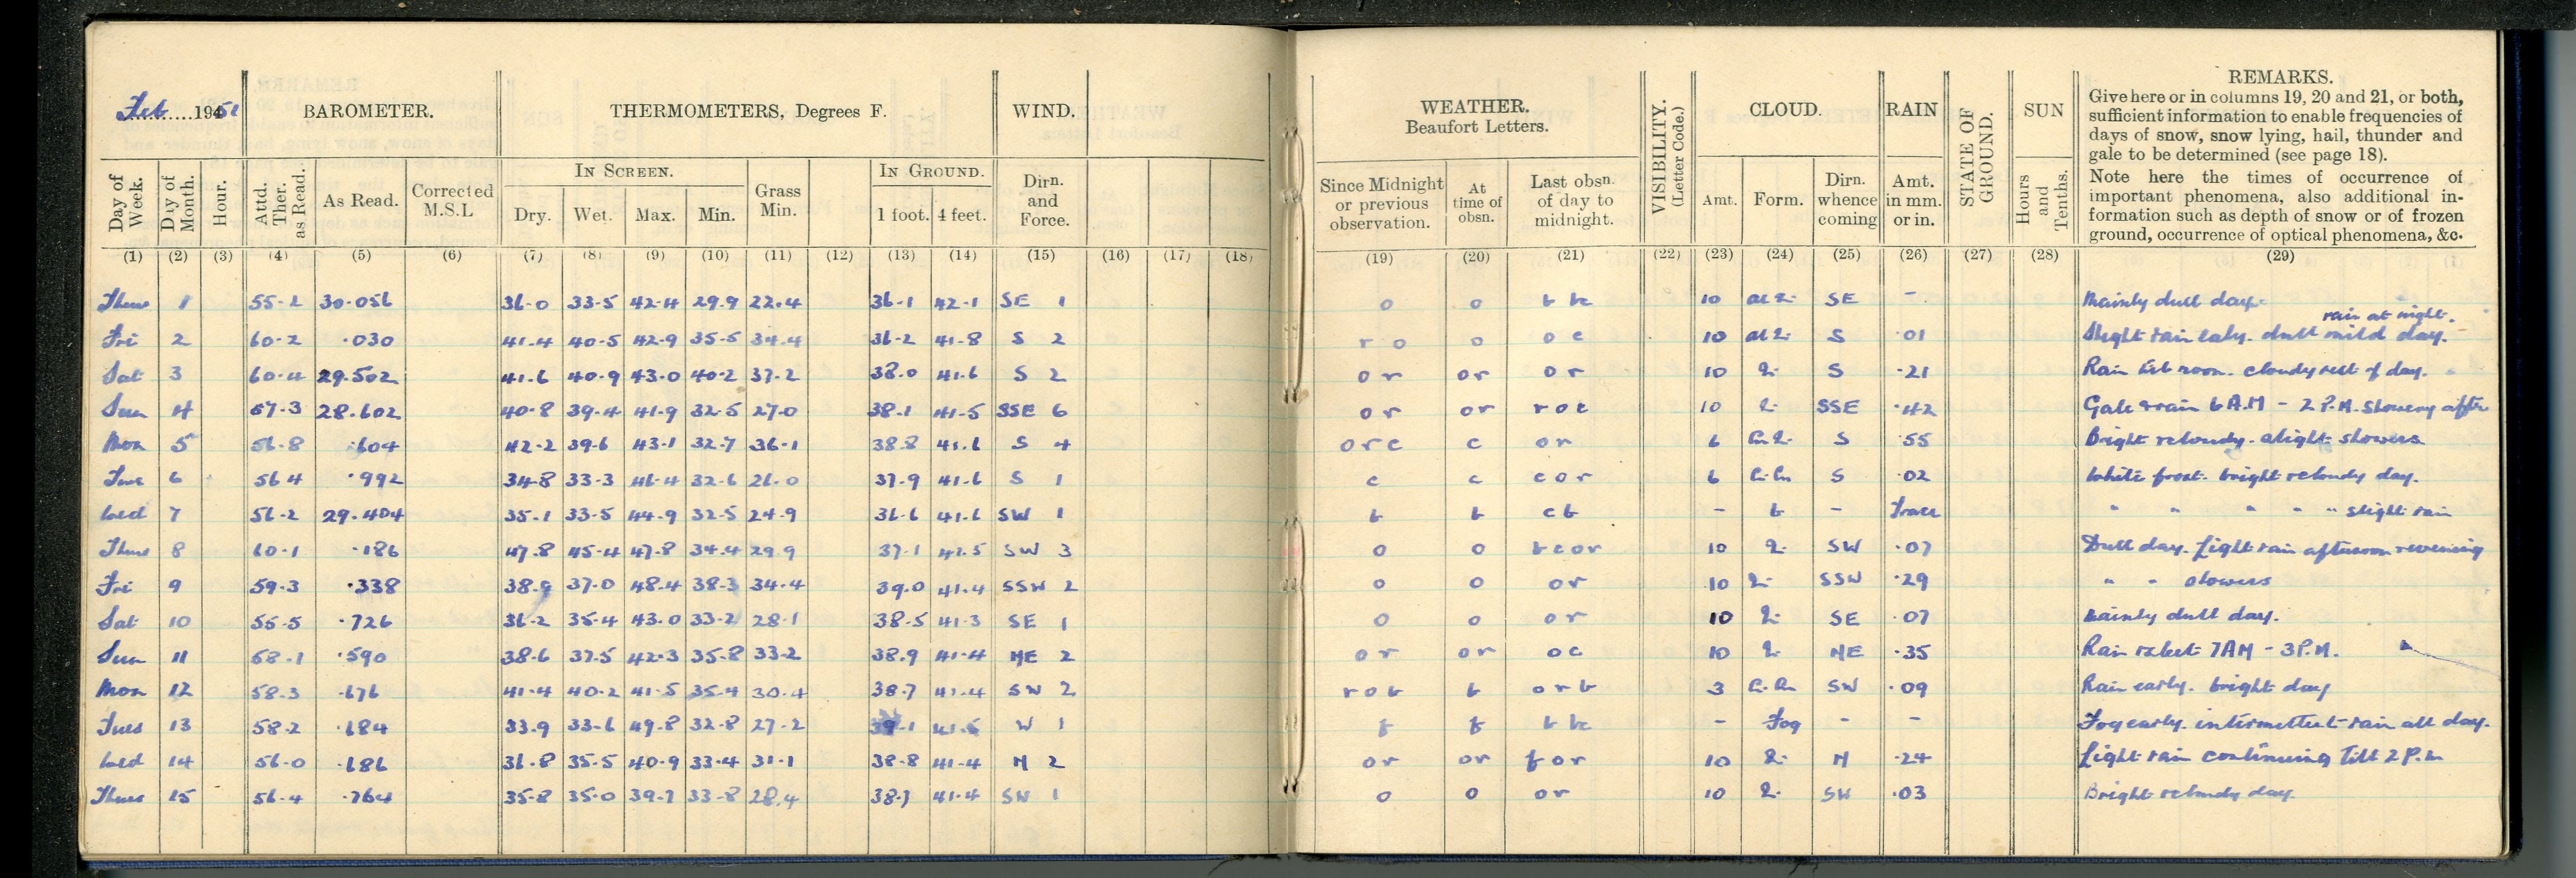 Feb 1951
BAROMETER. THERMOMETERS, Degrees F. WIND.
IN SCREEN. IN GROUND.
Day of Week. Day of Month. Hour. Attd. Ther. as Read. As Read. Corrected M.S.L Dry. Wet. Max. Min. Grass Min. 1 foot. 4 feet. Dirn. and Force.
(1) (2) (3) (4) (5) (6) (7) (8) (9) (10) (11) (12) (13) (14) (15) (16) (17) (18)
Thurs 1 55.2 30.056 36.0 33.5 42.4 29.9 22.4 36.1 42.1 SE 1
Fri 2 60.2 .030 41.4 40.5 42.9 35.5 34.4 36.2 41.8 S 2
Sat 3 60.4 29.502 41.6 40.9 43.0 40.2 37.2 38.0 41.6 S 2
Sun 4 57.3 28.602 40.8 39.4 41.9 32.5 27.0 38.1 41.5 SSE 6
Mon 5 56.8 .604 42.2 39.6 43.1 32.7 36.1 38.8 41.6 S 4
Tues 6 56.4 .992 34.8 33.3 46.4 32.6 26.0 37.9 41.6 S 1
Wed 7 56.2 29.404 35.1 33.5 44.9 32.5 24.9 36.6 41.6 SW 1
Thurs 8 60.1 .186 47.8 45.4 47.8 34.4 29.9 37.1 42.5 SW 3
Fri 9 59.3 .338 38.9 37.0 48.4 38.3 34.4 39.0 41.4 SSW 2
Sat 10 55.5 .726 36.2 35.4 43.0 33.2 28.1 38.5 41.3 SE 1
Sun 11 58.1 .590 38.6 37.5 42.3 35.8 33.2 38.9 41.4 NE 2
Mon 12 58.3 .676 41.4 40.2 41.5 35.4 30.4 38.7 41.4 SW 2
Tues 13 58.2 .684 33.9 33.6 49.8 32.8 27.2 39.1 41.5 W 1
Wed 14 56.0 .686 36.8 35.5 40.9 33.4 31.1 38.8 41.4 N 2
Thurs 15 56.4 .764 35.8 35.0 39.7 33.8 28.4 38.7 41.4 SW 1
WEATHER. Beaufort Letters. VISIBILITY. (Letter Code.) CLOUD. RAIN STATE OF GROUND. SUN REMARKS.
Give here or in columns 19, 20 and 21, or both,
sufficient information to enable frequencies of
days of snow, snow lying, hail, thunder and
gale to be determined (see page 18).
Note here the times of occurrence of
important phenomena, also additional in-
formation such as depth of snow or of frozen
ground, occurrence of optical phenomena, &c.
Since Midnight or previous observation. At time of obsn. Last obsn. of day to midnight. Amt. Form. Dirn. whence coming Amt. in mm. or in. Hours and Tenths.
(19) (20) (21) (22) (23) (24) (25) (26) (27) (28) (29)
o o 10 SE - Mainly dull day.
rain at night.
r o o o c 10 S .01 Slight rain ealy. dull mild day.
o r o r o r 10 S .21 Rain till noon. cloudy rest of day.
o r o r r o c 10 SSE .42 Gale & rain 6 A.M - 2 P.M. Showery after
o r c c o r 6 S .55 Bright & cloudy. slight showers
c c c o r 6 S .02 White frost. bright & cloudy day.
b b c b - b - Trace " " " " " slight rain
o o b c o r 10 SW .07 Dull day. Light rain afternoon & evening
o o o r 10 SSW .29 " " showers
o o o r 10 SE .07 Mainly dull day.
o r o r o c 10 NE .35 Rain & sleet 7AM - 3P.M.
r o b b o r b 3 SW .09 Rain early. bright day
f f - Fog - - Fog early. intermittent rain all day.
o r o r f o r 10 N .24 Light rain continuing Till 2 P.M
o o o r 10 SW .03 Bright & cloudy day.